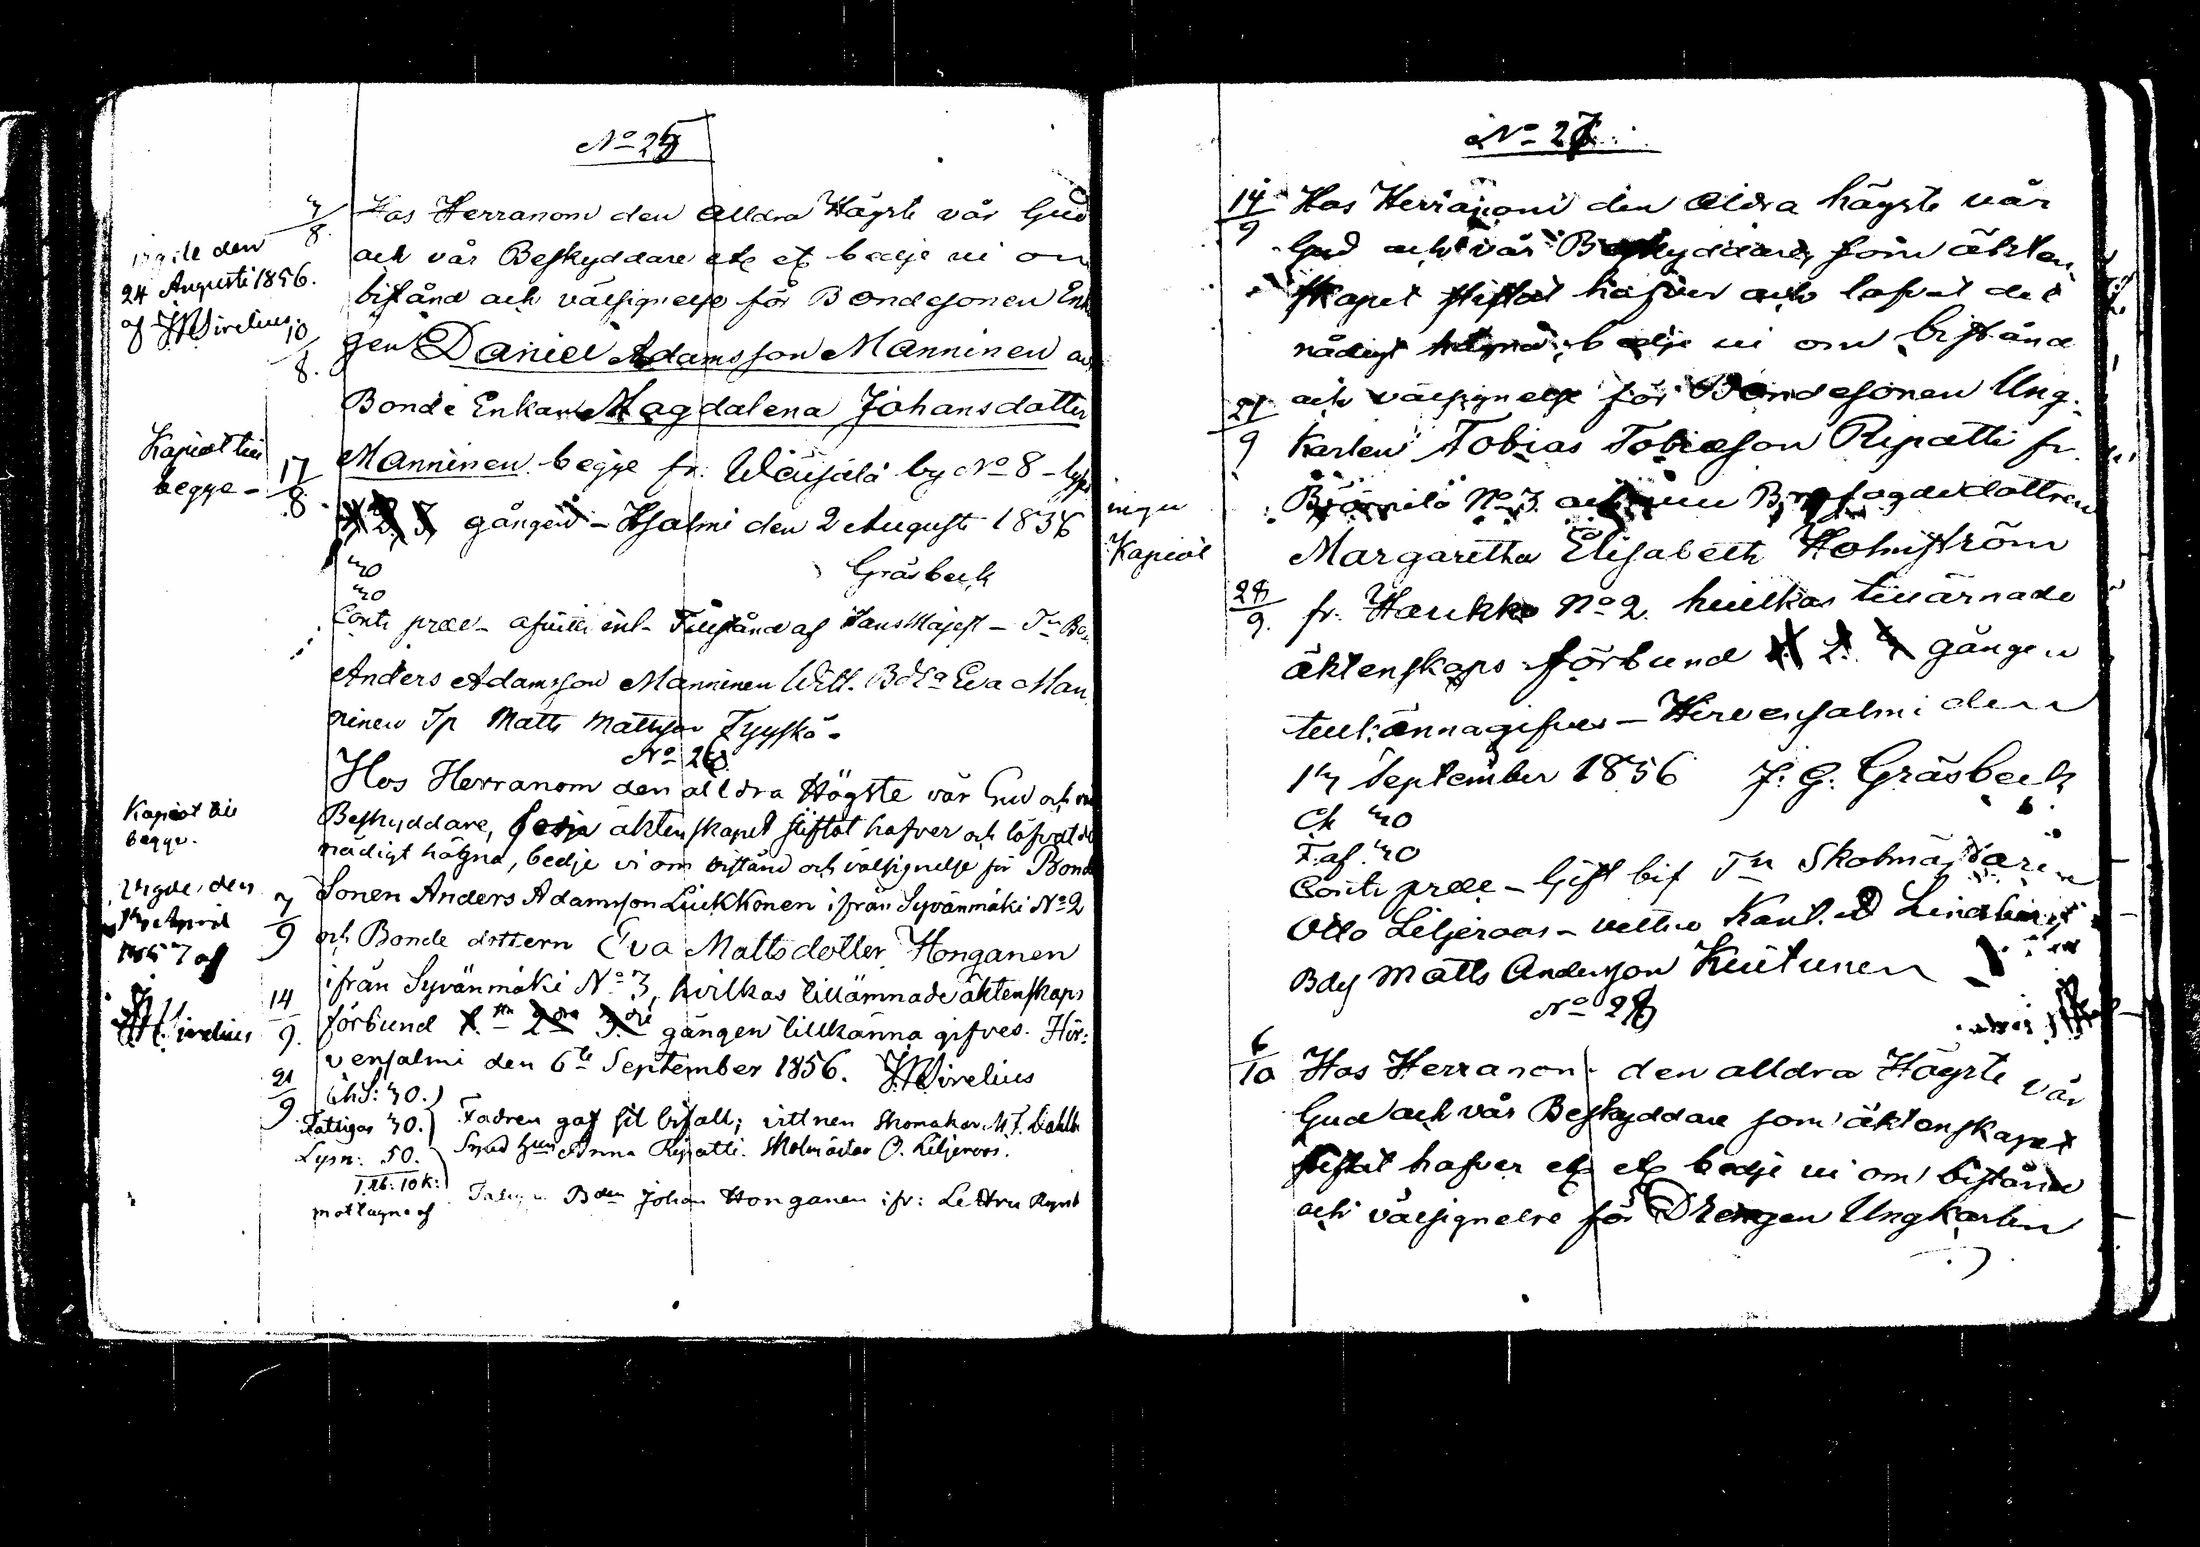 No 25
7/8 Hos Herranom den alldra Högste vår Gud
och vår Beskyddare etc etc bedje vi om
bistånd och välsignelse för Bondesonen Enk
gen Daniel Adamsson Manninen och
Bonde Enkan Magdalena Johansdotter
Manninen begge fr. Wäisälä by No 8 - lyses
1 2 3 gången - Hsalmi den 2 August 1856
Gräsbeck
40
40
Conti præe - afvitt inl. Tillstånd af Hans Majest -
Anders Adamsson Manninen Bda Eva Man
ninen Matts Mattsson Tyyskä -
vigde den
24 Augusti 1856.
af Wirelius.
10/8.
Kapiot till
begge -
17/8
No 26
Hos Herranom den alldra Högste vår Gud och vår
Beskyddare, äktenskapet stiftat hafver och lofvat det
nådigt hägna, bedje vi om bistånd och välsignelse för Bonde
Sonen Anders Adamsson Liukkonen ifrån Syvänmäki No 2
och Bonde dottern Eva Mattsdotter Honganen
ifrån Syvänmäki No 3, hvilkas tillämnade äktenskaps
förbund 1sta 2dra 3dje gången tillkänna gifves. Hir:
vensalmi den 6te September 1856. Wirelius
Kapiot till
begge.
vigde den
April
1857 af
Wirelius
7/9
14/9.
21/9
Ch S: 40.
Fattigas 40.
Lysn: 50.
1 Rb: 10 k:
mottagne af
Fadren gaf sit bifall; vittnen Skomakar M. F. Dahlb
Anna Ripatti. Skolmästar O. Liljeroos.
Bden Johan Honganen ifr:
No 27.
14/9 Hos Herranom den aldra högste vår
Gud och vår Beskyddare, som äkten
skapet stiftat hafver och lofvat det
nådigt hägna bedje vi om bistånd
21/9 och välsignelse för Bondesonen Ung-
karlen Tobias Tobiasson Ripatti fr.
Björnilä No 3 och Brofogdedottren
Margaretha Elisabeth Holmström
28/9. fr. Haukka No 2. hvilkas tillärnade
äktenskaps förbund 1 2 3 gången
tillkännagifves - Hirvensalmi den
14 September 1856 J. G. Gräsbeck
Ch 40
F. af. 40
Conti præe - Gift bif Skolmästaren
Otto Liljeroos - vittne Kant. Lindberg
Matts Andersson Kuitunen
ingen
Kapiot
No 28
6/10 Hos Herranom den alldra Högste vår
Gud och vår Beskyddare som äktenskapet
stiftat hafver etc etc bedje vi om bistånd
och välsignelse för Drengen Ungkarlen